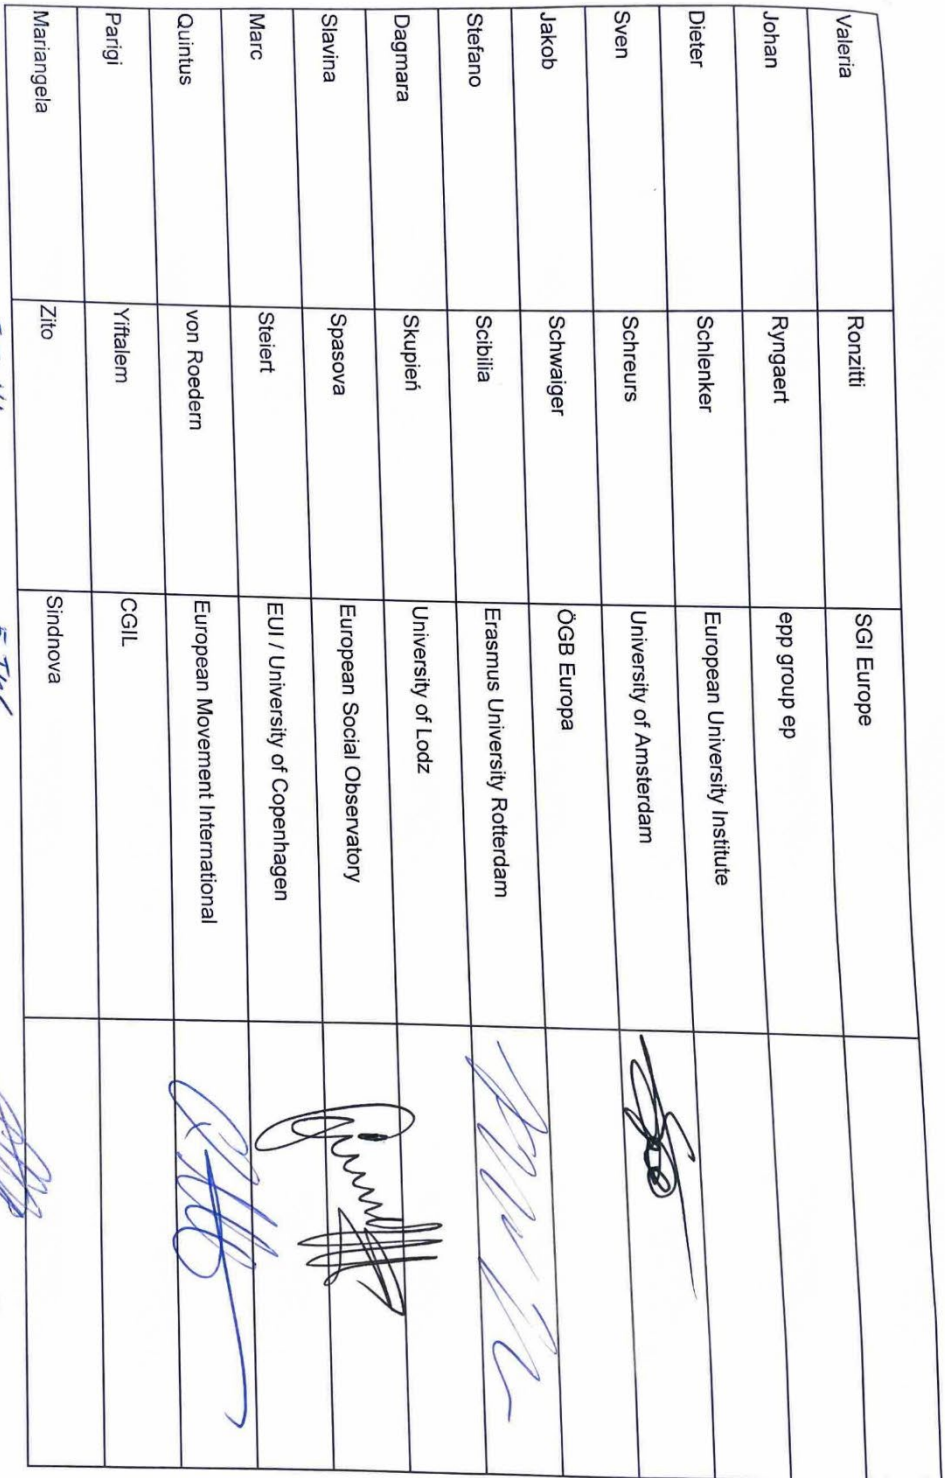 Valeria Ronzitti SGI Europe
Johan Ryngaert epp group ep
Dieter Schlenker European University Institute
Sven Schreurs University of Amsterdam
Jakob Schwaiger ÖGB Europa
Stefano Scibilia Erasmus University Rotterdam
Dagmara Skupień University of Lodz
Slavina Spasova European Social Observatory
Marc Steiert EUI / University of Copenhagen
Quintus von Roedern European Movement International
Parigi Yiftalem CGIL
Mariangela Zito Sindnova